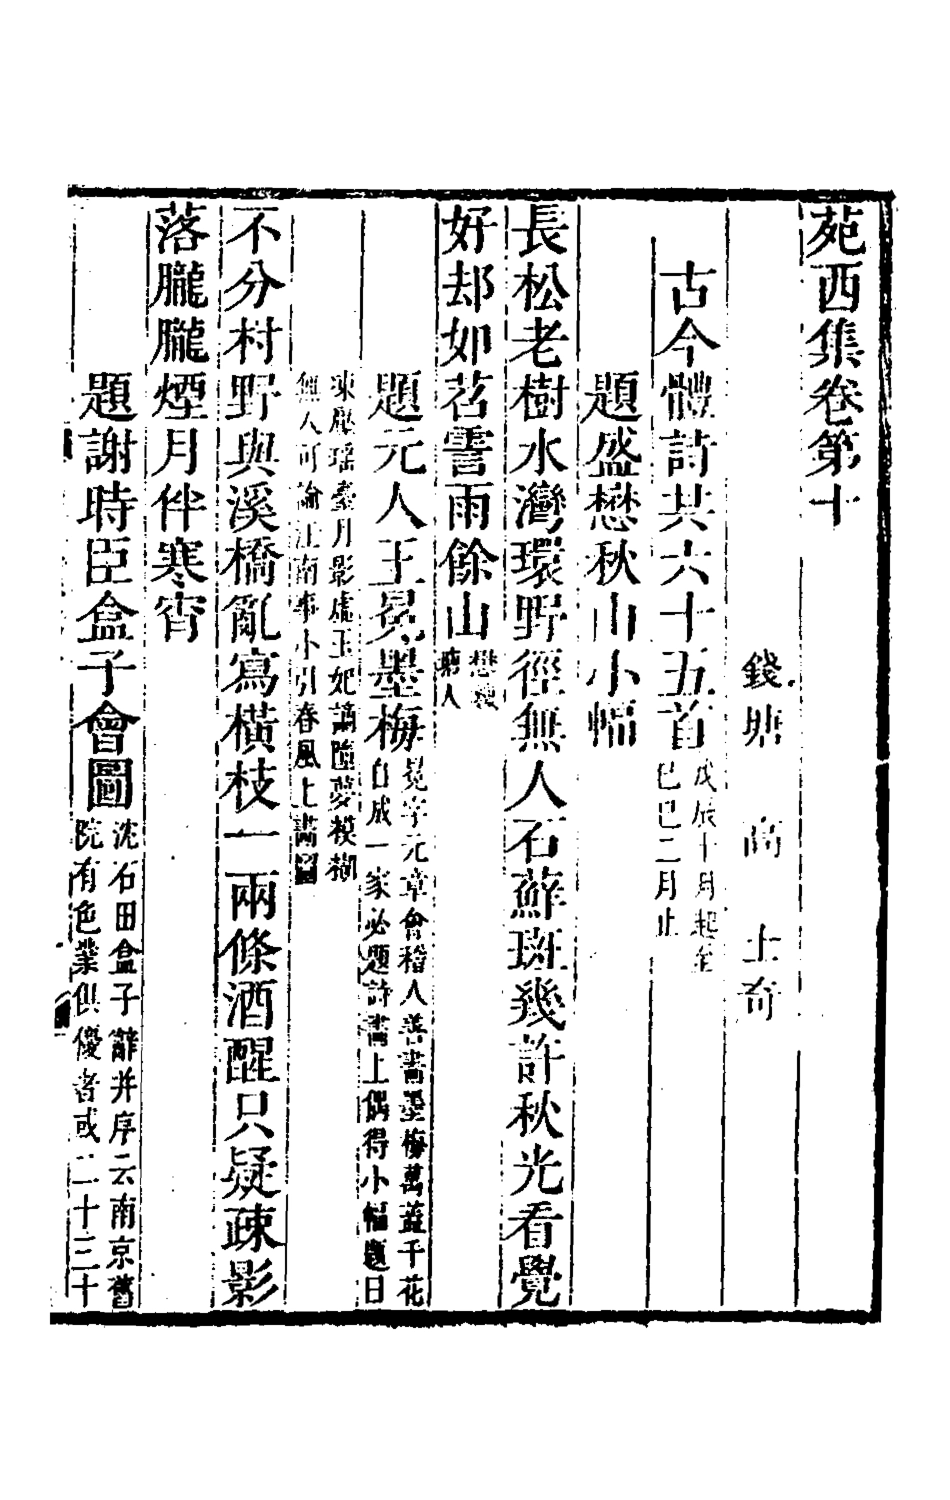 苑西集卷第十
錢塘高士奇
古今體詩共六十五首
戊辰十月起至
己巳二月止
題盛懋秋山小幅
長松老樹水灣環野徑無人石蘚斑幾許秋光看覺
好却如苕霅雨餘山
題元人王冕墨梅
冕字元章會稽人善畫墨梅萬蕊千花
自成一家必題詩畫上偶得小幅題曰
凍壓瑤臺月影虛玉妃謫墮夢模糊
無人可論江南事小引春風上畫圖
不分村野與溪橋亂寫橫枝一兩條酒醒只疑疎影
落朧朧煙月伴寒宵
題謝時臣盒子會圖
沈石田盒子辭并序云南京舊
院有色業俱優者或二十三十